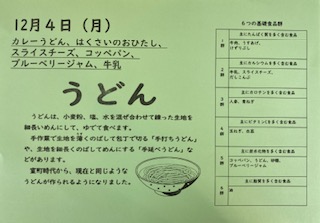 12月4日（月）
カレーうどん、はくさいのおひたし、
スライスチーズ、コッペパン、
ブルーベリージャム、牛乳
うどん
うどんは、小麦粉、塩、水を混ぜ合わせて練った生地を
細長いめんにして、ゆでて食べます。
手作業で生地を薄くのばして包丁で切る「手打ちうどん」
や、生地を細長くのばしてめんにする「手延べうどん」な
どがあります。
室町時代から、現在と同じような
うどんが作られるようになりました。
6つの基礎食品群
1群
主にたんぱく質を多く含む食品
牛肉、うすあげ、
けずりぶし
2群
主にカルシウムを多く含む食品
牛乳、スライスチーズ、
だしこんぶ
3群
主にカロテンを多く含む食品
人参、青ねぎ
4群
主にビタミンCを多く含む食品
玉ねぎ、白菜
5群
主に炭水化物を多く含む食品
コッペパン、うどん、砂糖、
ブルーベリージャム
6群
主に脂質を多く含む食品